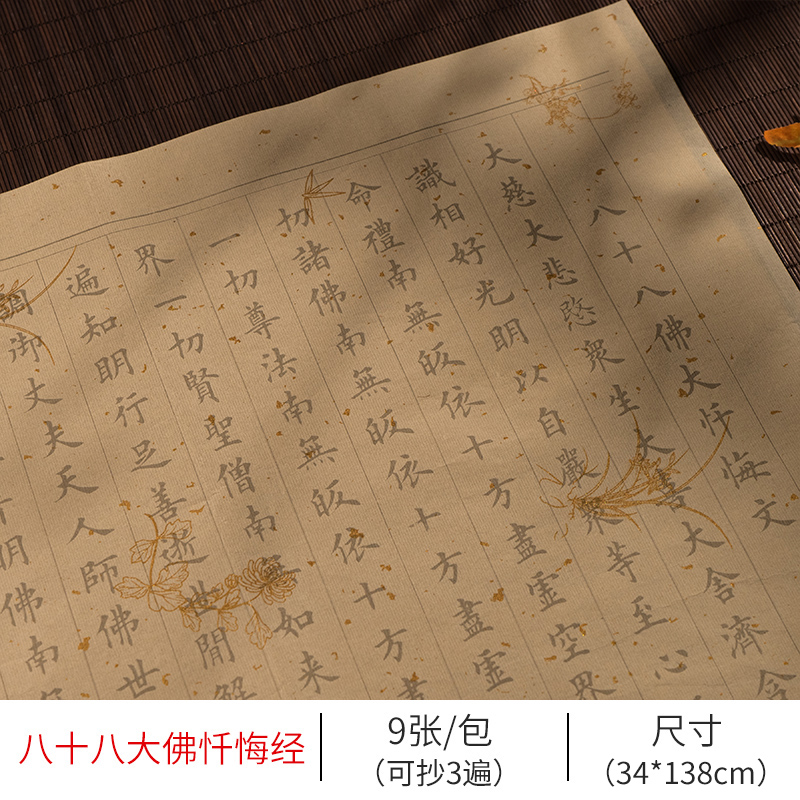 八十八佛大忏悔文
大慈大悲愍眾生大喜大舍濟含
識相好光明以自嚴眾等至心
命禮南無皈依十方盡虛空界
切諸佛南無皈依十方盡虛
一切尊法南無皈依十方盡
界一切賢聖僧南無如来
遍知明行足善逝世間解
調御丈夫天人師佛世
明佛南
八十八大佛忏悔经
9张/包
（可抄3遍）
尺寸
（34*138cm）